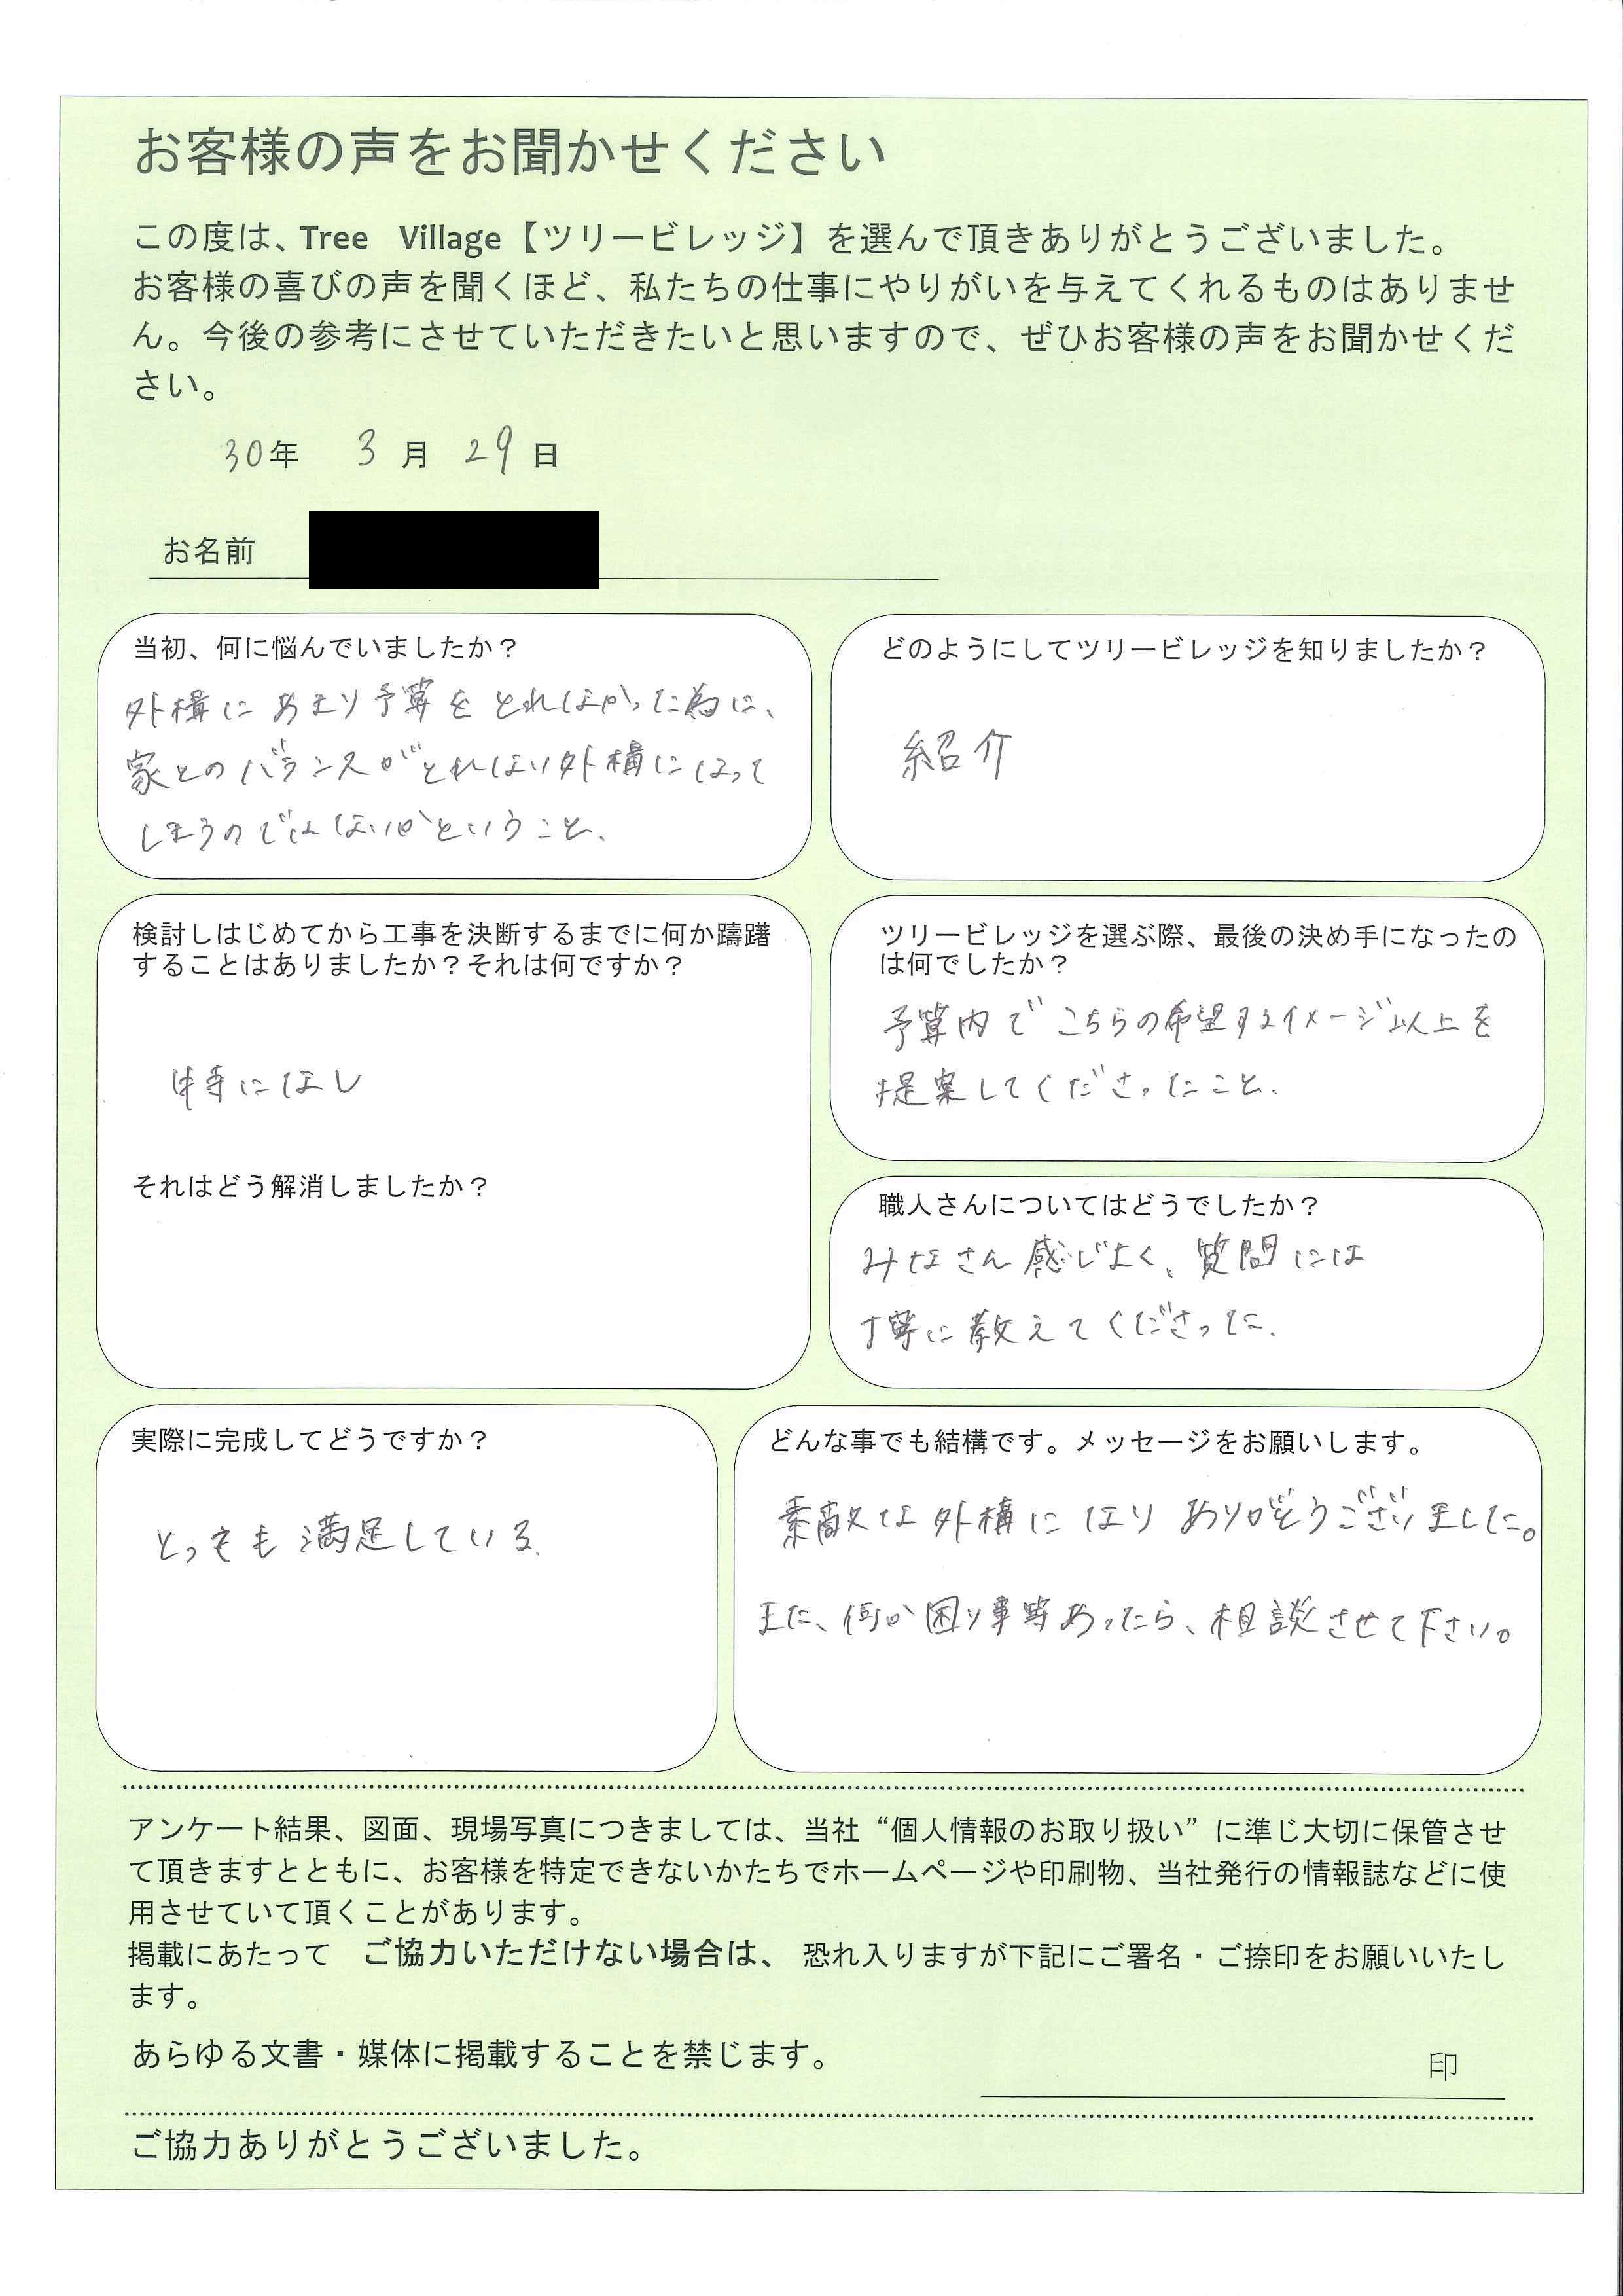 お客様の声をお聞かせください
この度は、Tree Village【ツリービレッジ】を選んで頂きありがとうございました。
お客様の喜びの声を聞くほど、私たちの仕事にやりがいを与えてくれるものはありませ
ん。今後の参考にさせていただきたいと思いますので、ぜひお客様の声をお聞かせくだ
さい。
30年 3月 29日
お名前
当初、何に悩んでいましたか？
外構にあまり予算をとれなかった為に、
家とのバランスがとれない外構になって
しまうのではないかということ、
どのようにしてツリービレッジを知りましたか？
紹介
検討しはじめてから工事を決断するまでに何か躊躇
することはありましたか？それは何ですか？
特になし
それはどう解消しましたか？
ツリービレッジを選ぶ際、最後の決め手になったの
は何でしたか？
予算内でこちらの希望するイメージ以上を
提案してくださったこと、
職人さんについてはどうでしたか？
みなさん感じよく、質問には
丁寧に教えてくださった、
実際に完成してどうですか？
とっても満足している、
どんな事でも結構です。メッセージをお願いします。
素敵な外構になりありがとうございました。
また、何か困り事等あったら、相談させて下さい。
アンケート結果、図面、現場写真につきましては、当社“個人情報のお取り扱い”に準じ大切に保管させ
て頂きますとともに、お客様を特定できないかたちでホームページや印刷物、当社発行の情報誌などに使
用させていて頂くことがあります。
掲載にあたって ご協力いただけない場合は、恐れ入りますが下記にご署名・ご捺印をお願いいたし
ます。
あらゆる文書・媒体に掲載することを禁じます。
印
ご協力ありがとうございました。